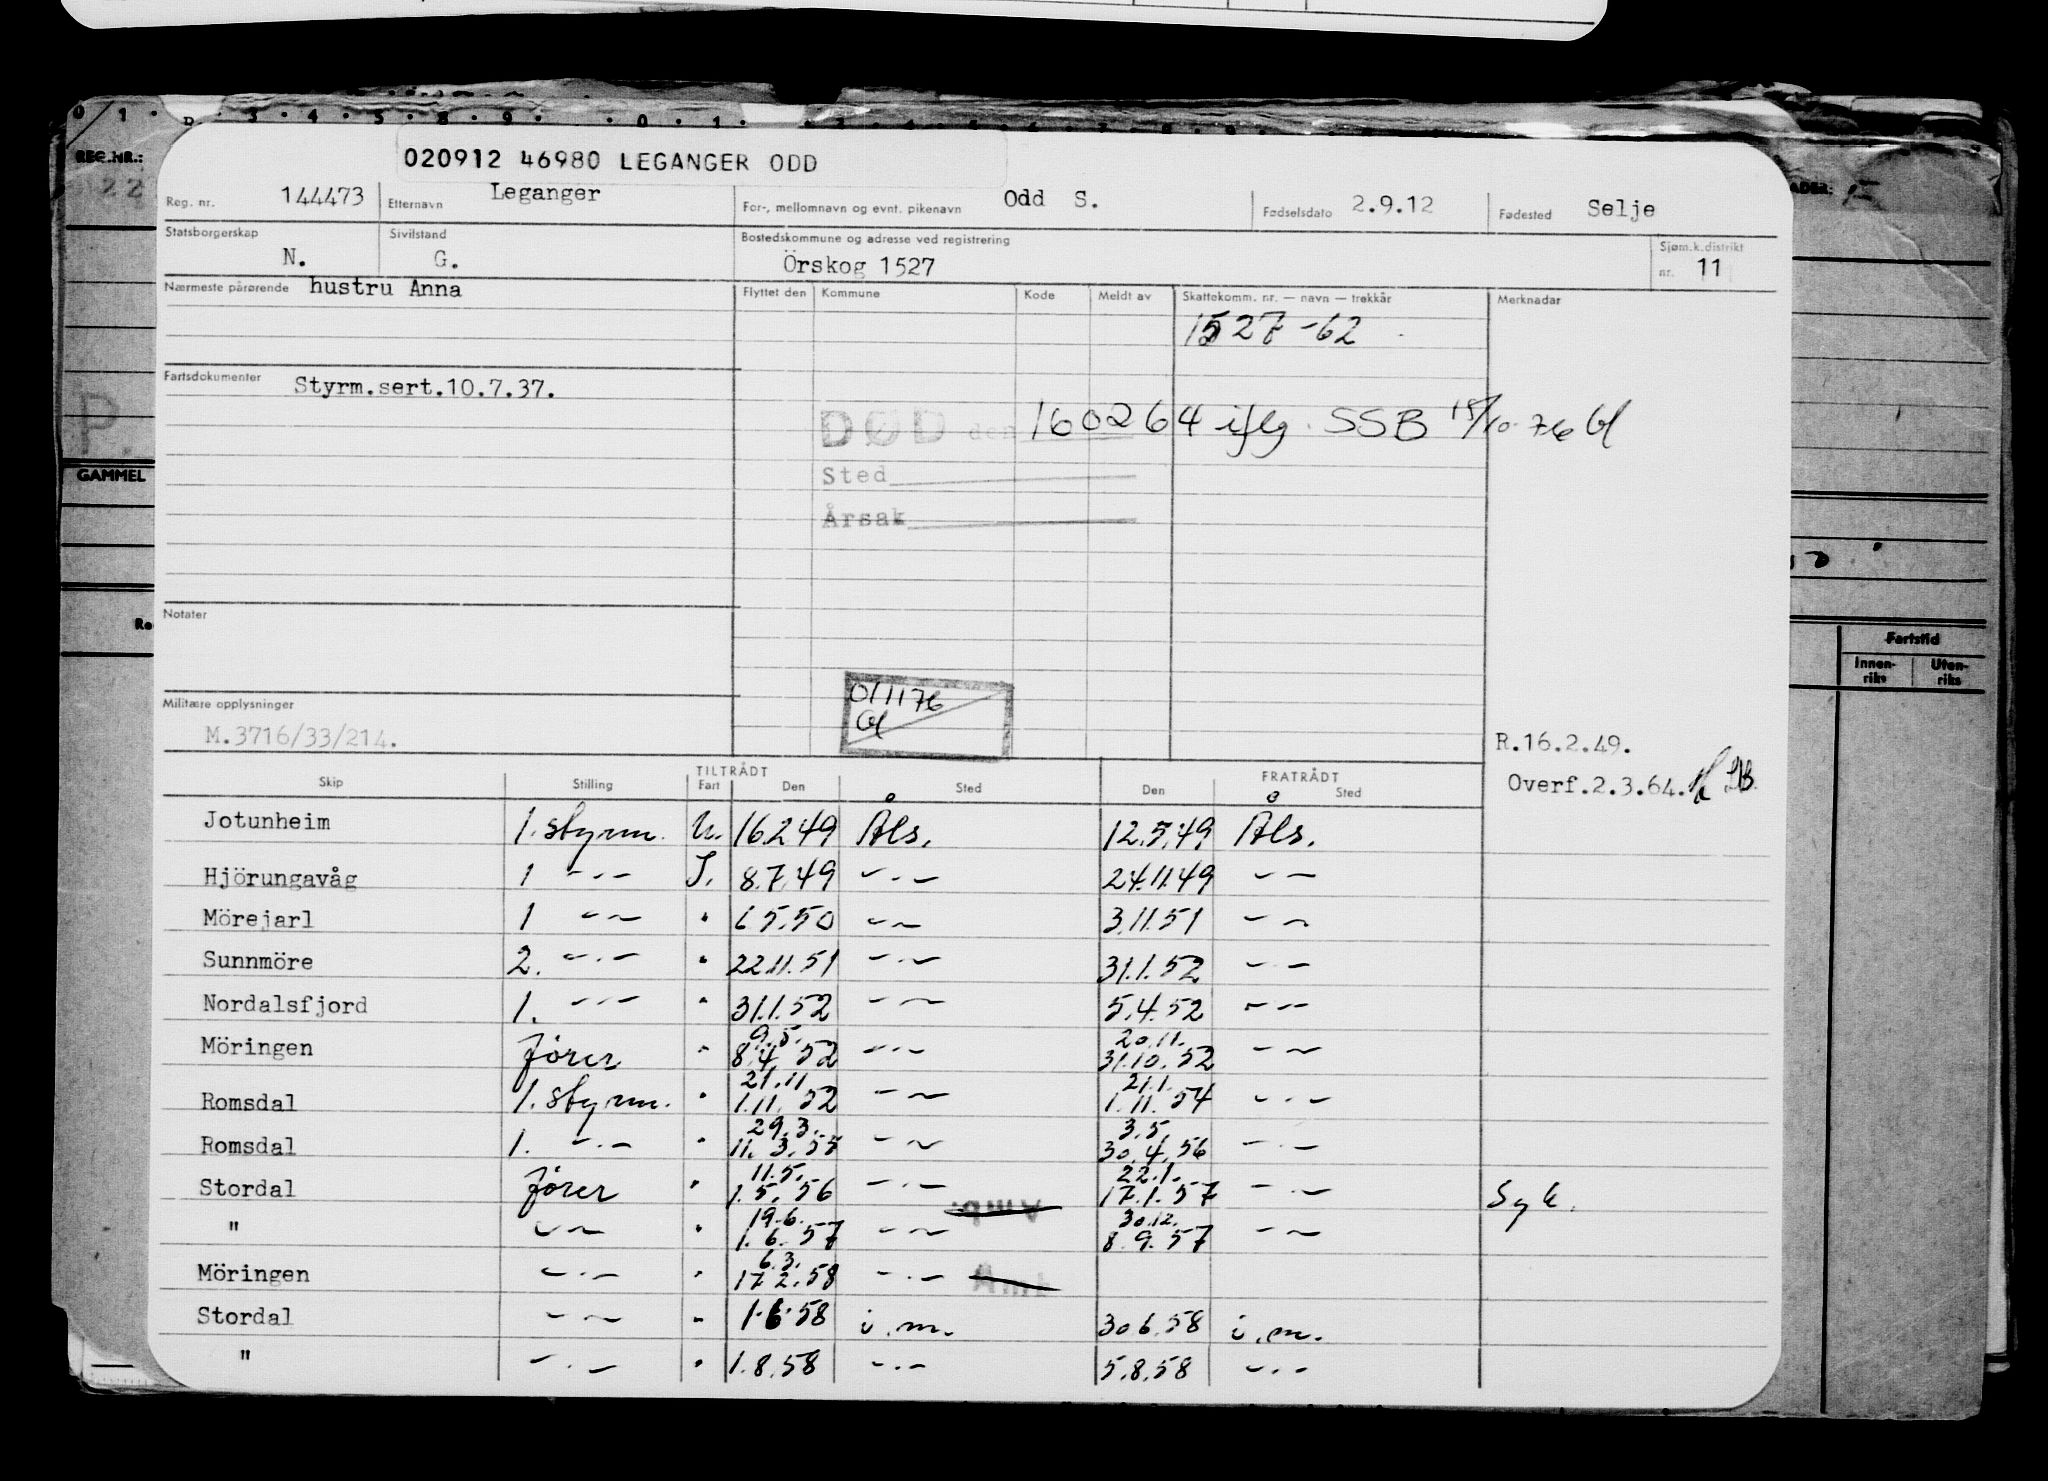 020912 46980 LEGANGER ODD
Reg. nr. 144473 Etternavn Leganger For-, mellomnavn og evnt. pikenavn Odd S. Fødselsdato 2.9.12 Fødested Selje
Statsborgerskap N. Sivilstand G. Bostedskommune og adresse ved registrering Örskog 1527 Sjøm.k.distrikt nr. 11
Nærmeste pårørende hustru Anna Flyttet den Kommune Kode Meldt av Skattekomm. nr. — navn — trekkår Merknadar
1527-62
Fartsdokumenter Styrm.sert.10.7.37.
DØD den 160264 iflg. SSB 15/10-76 Gl
Sted
Årsak
Notater
011176
Gl
Militære opplysninger
M.3716/33/214.
R.16.2.49.
Overf.2.3.64.
TILTRÅDT FRATRÅDT
Skip Stilling Fart Den Sted Den Sted
Jotunheim 1. styrm. U. 16249 Åls. 12.5.49 Åls.
Hjörungavåg 1 -·- I. 8.7.49 -·- 24.11.49 --
Mörejarl 1 -- " 5.50 -- 3.11.51 --
Sunnmöre 2. -·- " 22.11.51 -·- 31.1.52 -·-
Nordalsfjord 1. -·- " 31.1.52 -·- 5.4.52 -·-
Möringen fører " 9.5. 8.4 52 -·- 20.11. 31.10.52 --
Romsdal 1. styrm. " 21.11 1.11.52 -- 21.1. 1.11.54 -·-
Romsdal 1. -·- " 29.3. 11.3.55 -- 3.5 30.4.56 -·-
Stordal fører " 11.5. 1.5.56 -·- Amb. 22.1. 17.1.57 -·- Syk.
" -- " 19.6. 1.6.57 -- 30.12. 8.9.57 --
Möringen -·- " 6.3. 17.2.58 -·-
Stordal -- " 1.6.58 i.m. 30.6.58 i.m.
" -·- " 1.8.58 -·- 5.8.58 -·-
REG.NR.:
22
P.
GAMMEL
Fartstid
Innen-
riks
Uten-
riks